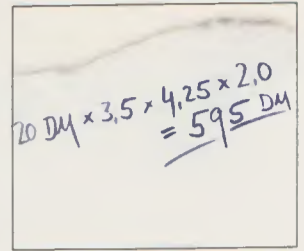 20 DM × 3,5 × 4,25 × 2,0
= 595 DM